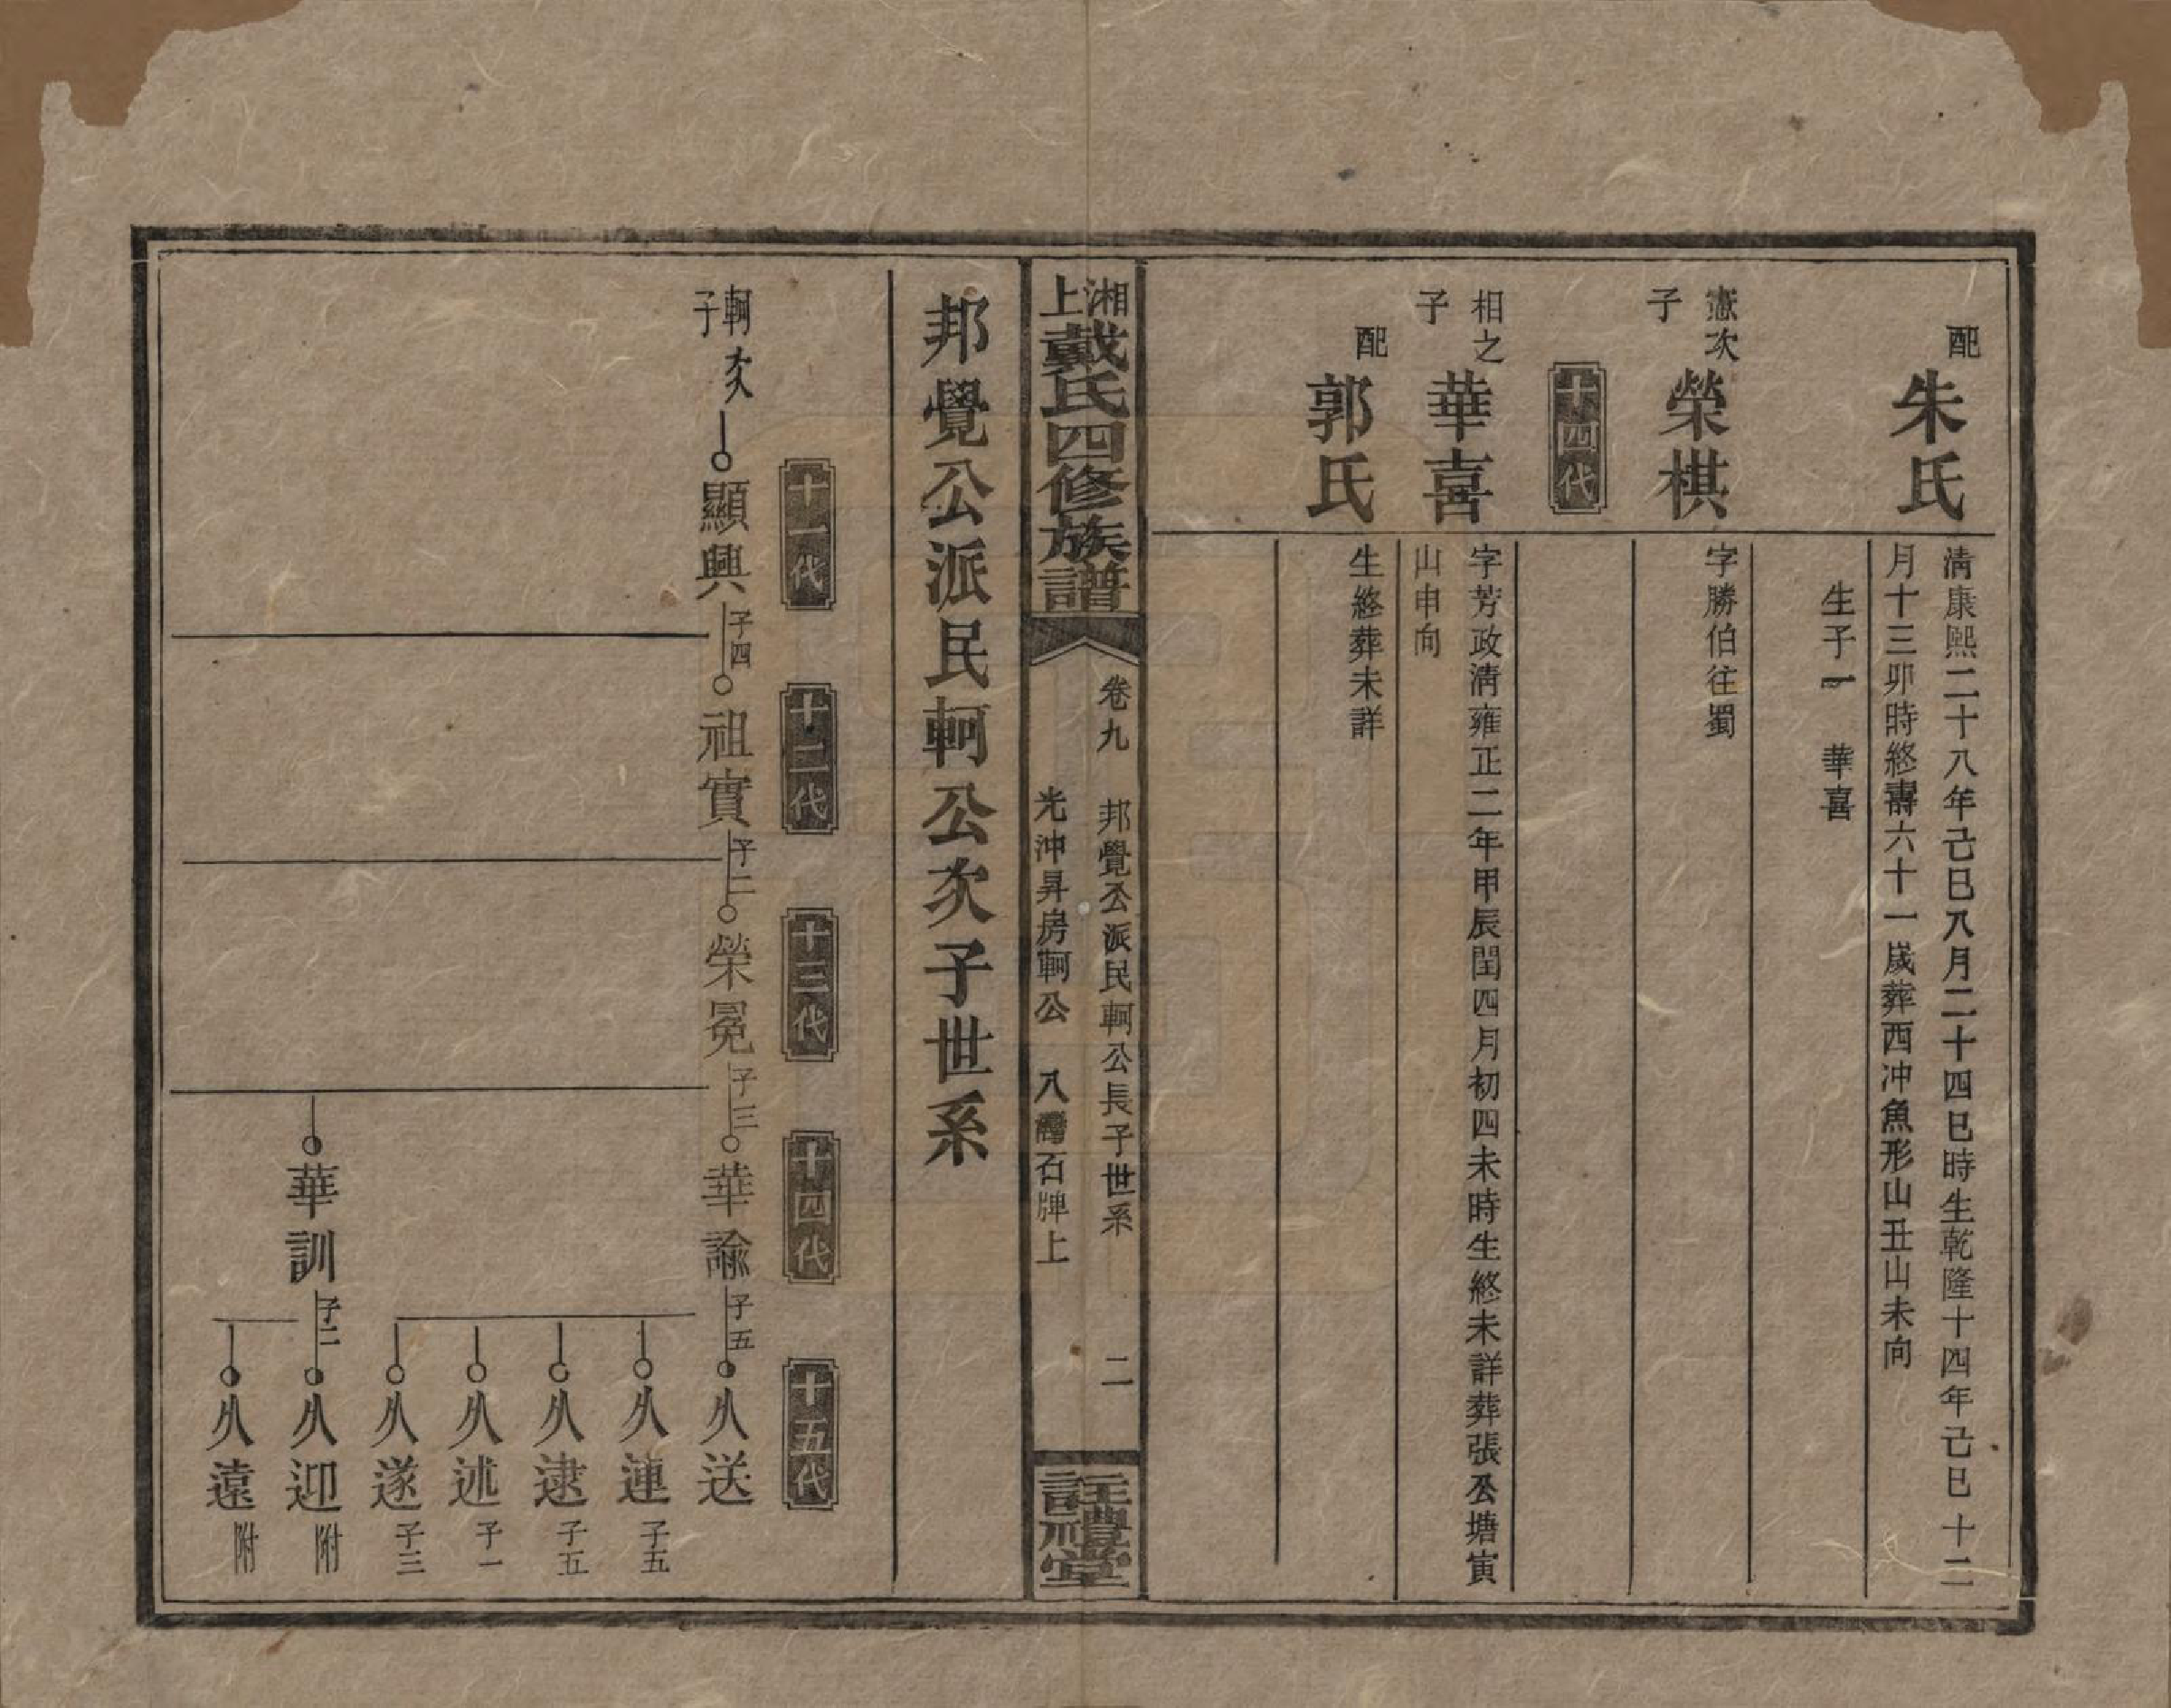 配
朱氏
清康熙二十八年己巳八月二十四巳時生乾隆十四年己巳十二
月十三卯時終壽六十一歲葬西冲魚形山丑山未向
生子一　華喜
憲次子
榮棋
字勝伯往蜀
十四代
相之子
華喜
字芳政清雍正二年甲辰閏四月初四未時生終未詳葬張公塘寅
山申向
配
郭氏
生終葬未詳
湘上戴氏四修族譜
卷九　邦覺公派民軻公長子世系　二
光沖昇房軻公　八灣石牌上
註禮堂
邦覺公派民軻公次子世系
十一代
十二代
十三代
十四代
十五代
軻次子
顯興 子四
祖實 子二
榮冕 子三
華諭 子五
久送
久連 子五
久逮 子五
久述 子一
久遂 子三
華訓 子二
久迎 附
久遠 附